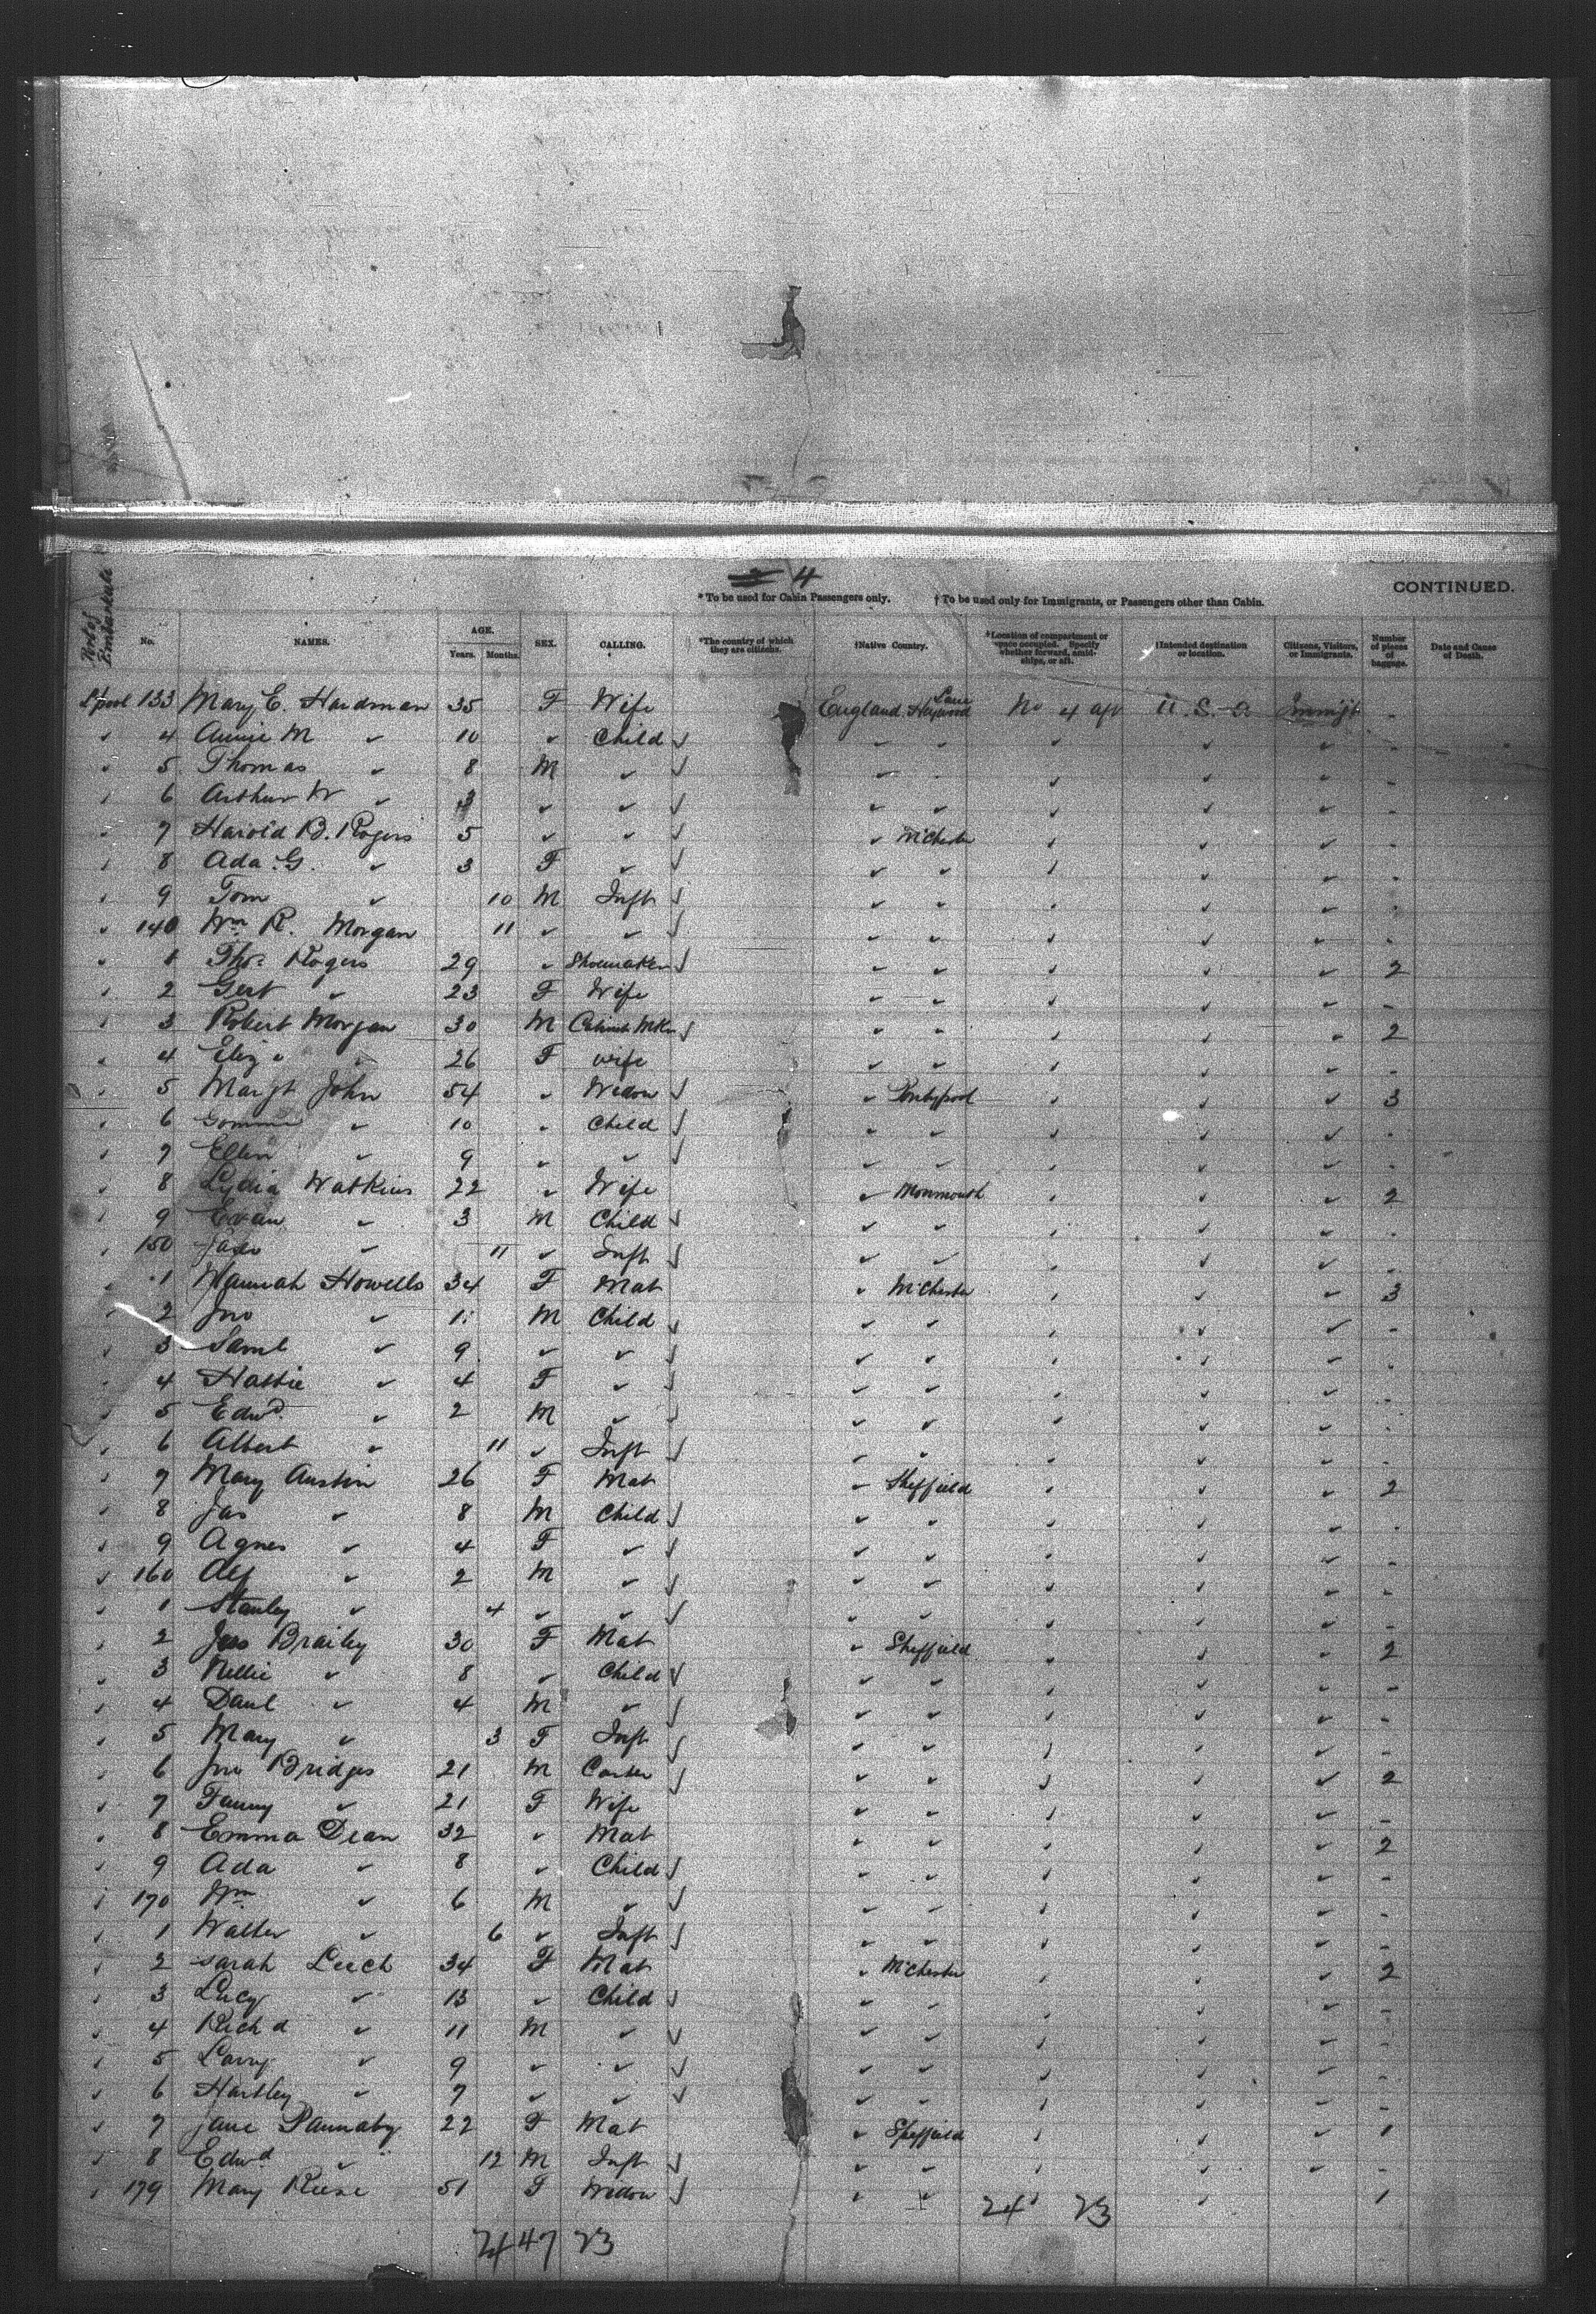 4
CONTINUED.
* To be used for Cabin Passengers only. † To be used only for Immigrants, or Passengers other than Cabin.
Port of Embarkate No. NAMES. AGE. Years. Months. SEX. CALLING. *The country of which they are citizens. †Native Country. †Location of compartment or space occupied. Specify whether forward, amidships, or aft. †Intended destination or location. Citizens, Visitors, or Immigrants. Number of pieces of baggage. Date and Cause of Death.
L'pool 133 Mary E. Hardman 35 F Wife England No 4 aft U. S. A. Immigt -
✓ 4 Annie M ✓ 10 ✓ Child ✓ ✓ ✓ ✓ ✓ -
✓ 5 Thomas ✓ 8 M ✓ ✓ ✓ ✓ ✓ -
✓ 6 Arthur W ✓ 3 ✓ ✓ ✓ ✓ ✓ ✓ ✓ -
✓ 7 Harold B. Rogers 5 ✓ ✓ ✓ M'Chester ✓ ✓ ✓ -
✓ 8 Ada G. ✓ 3 F ✓ ✓ ✓ ✓ ✓ ✓ -
✓ 9 Tom ✓ 10 M Inft ✓ ✓ ✓ ✓ ✓
✓ 140 Wm R. Morgan 11 ✓ ✓ ✓ ✓ ✓ ✓ ✓ -
✓ 1 Thos Rogers 29 ✓ Shoemaker ✓ ✓ ✓ ✓ ✓ 2
✓ 2 Gert ✓ 23 F Wife ✓ ✓ ✓ ✓ ✓ -
✓ 3 Robert Morgan 30 M Cabinet Mkr ✓ ✓ ✓ ✓ ✓ 2
✓ 4 Eliz ✓ 26 F wife ✓ ✓ ✓ ✓ ✓ -
✓ 5 Margt John 54 ✓ Widow ✓ Pontypool ✓ ✓ ✓ 3
✓ 6 ✓ 10 ✓ Child ✓ ✓ ✓ ✓ ✓ -
✓ 7 Ellen ✓ 9 ✓ ✓ ✓ ✓ ✓ ✓ ✓ -
✓ 8 Lydia Watkins 22 ✓ Wife ✓ Monmouth ✓ ✓ ✓ 2
✓ 9 Evan ✓ 3 M Child ✓ ✓ ✓ ✓ ✓ -
✓ 150 ✓ 11 ✓ Inft ✓ ✓ ✓ ✓ ✓ -
1 Hannah Howells 34 F Mat ✓ M'Chester ✓ ✓ ✓ 3
✓ 2 Jno ✓ M Child ✓ ✓ ✓ ✓ ✓ -
✓ 3 Saml ✓ 9 ✓ ✓ ✓ ✓ ✓ ✓ ✓ -
✓ 4 Hattie ✓ 4 F ✓ ✓ ✓ ✓ ✓ ✓ -
✓ 5 Edwd. ✓ 2 M ✓ ✓ ✓ ✓ ✓ ✓ -
✓ 6 Albert ✓ 11 ✓ Inft ✓ ✓ ✓ ✓ ✓ -
✓ 7 Mary Austin 26 F Mat ✓ Sheffield ✓ ✓ ✓ 2
✓ 8 Jas ✓ 8 M Child ✓ ✓ ✓ ✓ ✓ -
✓ 9 Agnes ✓ 4 F ✓ ✓ ✓ ✓ ✓ ✓ -
✓ 160 Alf ✓ 2 M ✓ ✓ ✓ ✓ ✓ ✓ -
✓ 1 Stanley ✓ 4 ✓ ✓ ✓ ✓ ✓ ✓ ✓ -
✓ 2 Brailey 30 F Mat ✓ Sheffield ✓ ✓ ✓ 2
✓ 3 Nellie ✓ 8 ✓ Child ✓ ✓ ✓ ✓ ✓ -
✓ 4 Danl ✓ 4 M ✓ ✓ ✓ ✓ ✓ ✓ -
✓ 5 Mary ✓ 3 F Inft ✓ ✓ ✓ ✓ ✓ -
✓ 6 Jno Bridges 21 M Carter ✓ ✓ ✓ ✓ ✓ 2
✓ 7 Fanny ✓ 21 F Wife ✓ ✓ ✓ ✓ ✓ -
✓ 8 Emma Dean 32 ✓ Mat ✓ ✓ ✓ ✓ ✓ 2
✓ 9 Ada ✓ 8 ✓ Child ✓ ✓ ✓ ✓ ✓ -
✓ 170 Wm ✓ 6 M ✓ ✓ ✓ ✓ ✓ ✓ -
✓ 1 Walter ✓ 6 ✓ Inft ✓ ✓ ✓ ✓ ✓ -
✓ 2 Sarah Leech 34 F Mat ✓ M'Chester ✓ ✓ ✓ 2
✓ 3 Lucy ✓ 13 ✓ Child ✓ ✓ ✓ ✓ ✓ -
✓ 4 Richd ✓ 11 M ✓ ✓ ✓ ✓ ✓ ✓ -
✓ 5 Larry ✓ 9 ✓ ✓ ✓ ✓ ✓ ✓ ✓ -
✓ 6 Hartley ✓ 7 ✓ ✓ ✓ ✓ ✓ ✓ ✓ -
✓ 7 Jane 22 F Mat ✓ Sheffield ✓ ✓ ✓ 1
✓ 8 Edwd ✓ 12 M Inft ✓ ✓ ✓ ✓ ✓ -
✓ 179 Mary Reese 51 F Widow ✓ ✓ ✓ 1
24 23
24 47 23